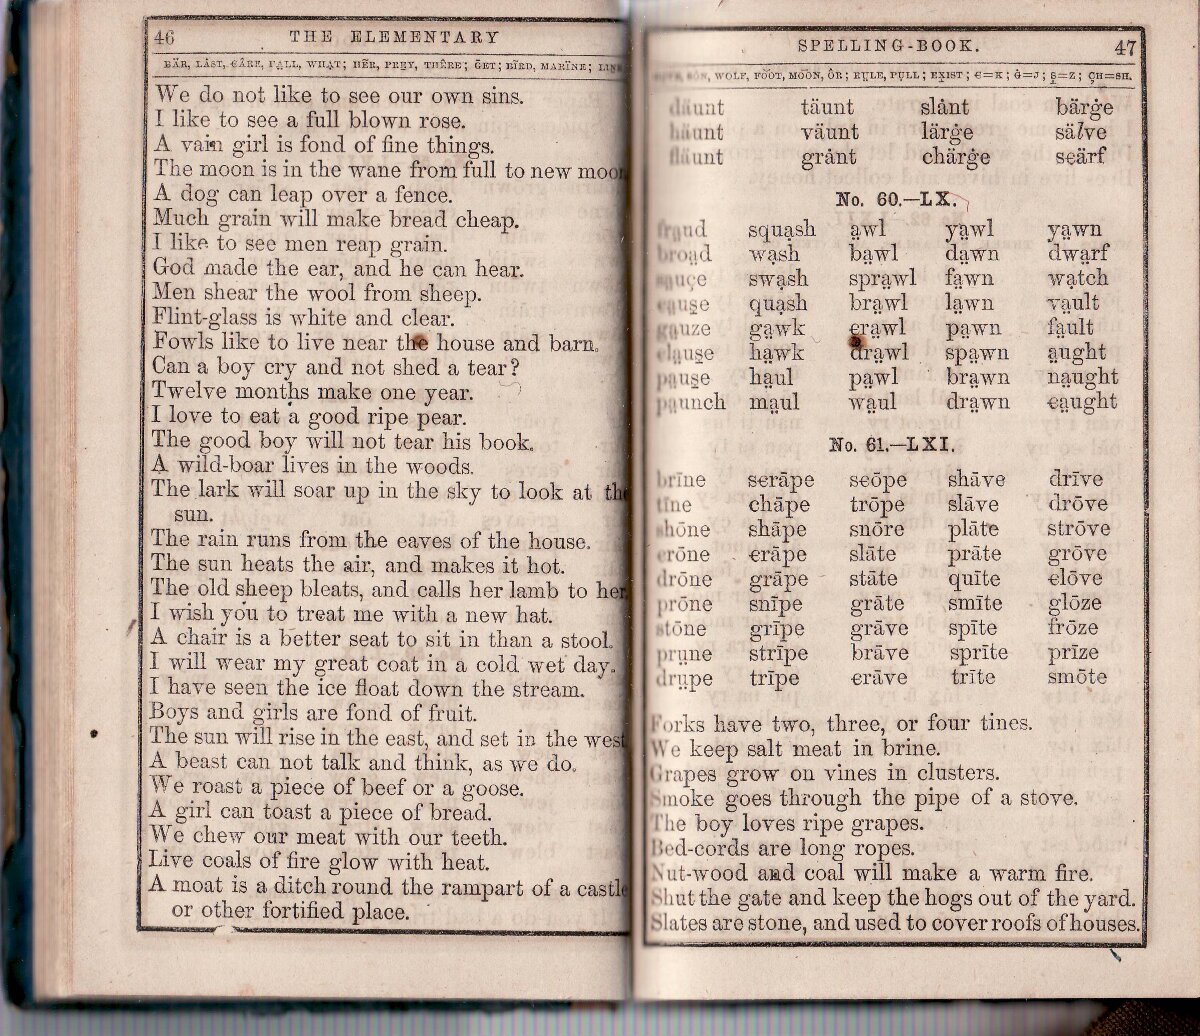 46 THE ELEMENTARY
BÄR, LÅST, ЄÂRE, FẠLL, WHẠT; HẼR, PRE̱Y, THÊRE; ḠET; BĨRD, MARÏNE;
We do not like to see our own sins.
I like to see a full blown rose.
A vain girl is fond of fine things.
The moon is in the wane from full to new moon.
A dog can leap over a fence.
Much grain will make bread cheap.
I like to see men reap grain.
God made the ear, and he can hear.
Men shear the wool from sheep.
Flint-glass is white and clear.
Fowls like to live near the house and barn.
Can a boy cry and not shed a tear?
Twelve months make one year.
I love to eat a good ripe pear.
The good boy will not tear his book.
A wild-boar lives in the woods.
The lark will soar up in the sky to look at the
sun.
The rain runs from the eaves of the house.
The sun heats the air, and makes it hot.
The old sheep bleats, and calls her lamb to her.
I wish you to treat me with a new hat.
A chair is a better seat to sit in than a stool.
I will wear my great coat in a cold wet day.
I have seen the ice float down the stream.
Boys and girls are fond of fruit.
The sun will rise in the east, and set in the west.
A beast can not talk and think, as we do.
We roast a piece of beef or a goose.
A girl can toast a piece of bread.
We chew our meat with our teeth.
Live coals of fire glow with heat.
A moat is a ditch round the rampart of a castle
or other fortified place.
SPELLING-BOOK. 47
SȮN, WOLF, FO͝OT, MO͞ON, ÔR; RṲLE, PṲLL; EX̱IST; Є=K; Ġ=J; S̱=Z; ÇH=SH.
däunt täunt slȧnt bärġe
häunt väunt lärġe sälve
fläunt grȧnt chärġe seärf
No. 60.—LX.
frạud squạsh ạwl yạwl yạwn
broạd wạsh bạwl dạwn dwạrf
sạuçe swạsh sprạwl fạwn wạtch
єạus̱e quạsh brạwl lạwn vạult
gạuze gạwk єrạwl pạwn fạult
єlạus̱e hạwk drạwl spạwn ạught
pạus̱e hạul pạwl brạwn nạught
pạunch mạul wạul drạwn єạught
No. 61.—LXI.
brīne sєrāpe sєōpe shāve drīve
tīne chāpe trōpe slāve drōve
shōne shāpe snōre plāte strōve
єrōne єrāpe slāte prāte grōve
drōne grāpe stāte quīte єlōve
prōne snīpe grāte smīte glōze
stōne grīpe grāve spīte frōze
prṳne strīpe brāve sprīte prīze
drṳpe trīpe єrāve trīte smōte
Forks have two, three, or four tines.
We keep salt meat in brine.
Grapes grow on vines in clusters.
Smoke goes through the pipe of a stove.
The boy loves ripe grapes.
Bed-cords are long ropes.
Nut-wood and coal will make a warm fire.
Shut the gate and keep the hogs out of the yard.
Slates are stone, and used to cover roofs of houses.